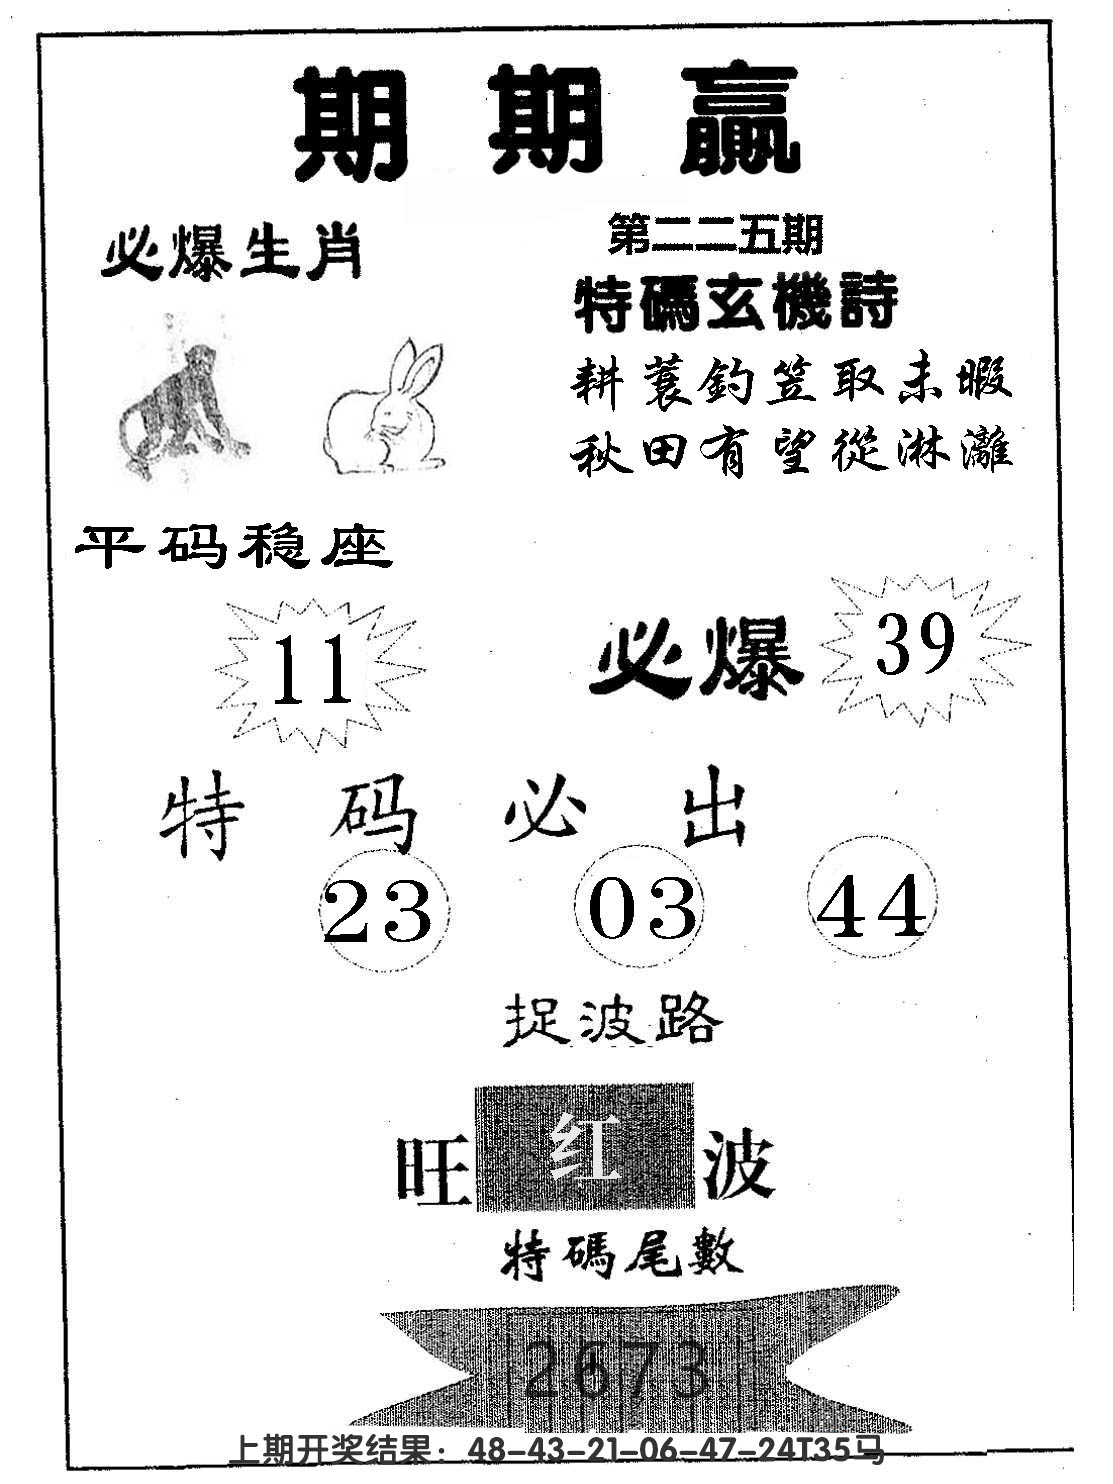 期期赢
必爆生肖
第二二五期
特碼玄機詩
耕蓑釣笠取未暇
秋田有望從淋灕
平码稳座
11
必爆
39
特码必出
23
03
44
捉波路
旺红波
特碼尾數
2673
上期开奖结果：48-43-21-06-47-24T35马